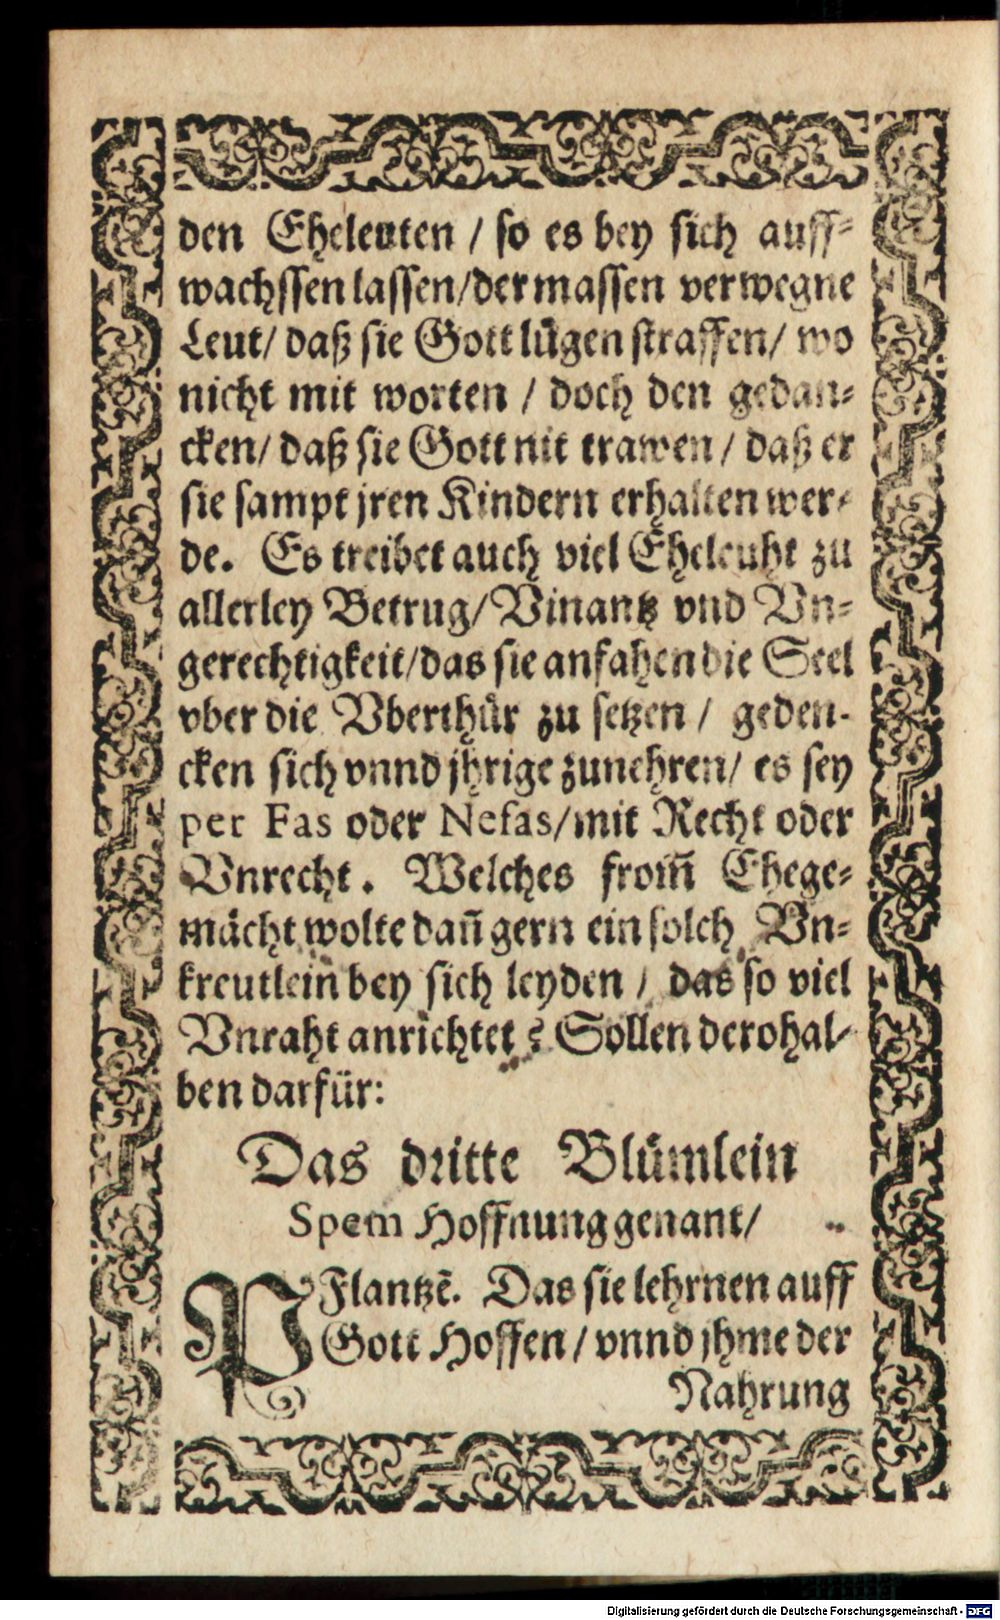 den Eheleuten / so es bey sich auff-
wachssen lassen/dermassen verwegne
Leut/ daß sie Gott lügen straffen/ wo
nicht mit worten / doch den gedan-
cken/ daß sie Gott nit trawen / daß er
sie sampt jren Kindern erhalten wer-
de. Es treibet auch viel Eheleuht zu
allerley Betrug/ Vinantz vnd Vn-
gerechtigkeit/das sie anfahen die Seel
vber die Vberthür zu setzen / geden-
cken sich vnnd jhrige zunehren/ es sey
per Fas oder Nefas/mit Recht oder
Vnrecht. Welches from̃ Ehege-
mächt wolte dañ gern ein solch Vn-
kreutlein bey sich leyden / das so viel
Vnraht anrichtet? Sollen derohal-
ben darfür:
Das dritte Blümlein
Spem Hoffnung genant/
PFlantzẽ. Das sie lehrnen auff
Gott Hoffen / vnnd jhme der
Nahrung
Digitalisierung gefördert durch die Deutsche Forschungsgemeinschaft - DFG